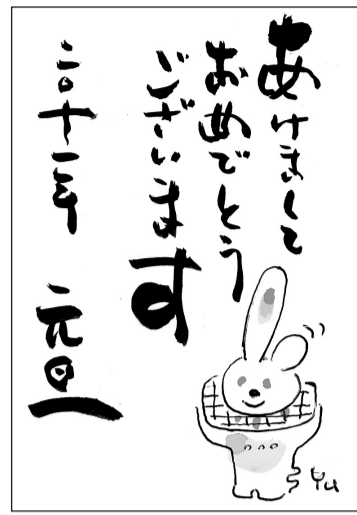 あけまして
おめでとう
ございます
二〇十一年 元旦
Yu